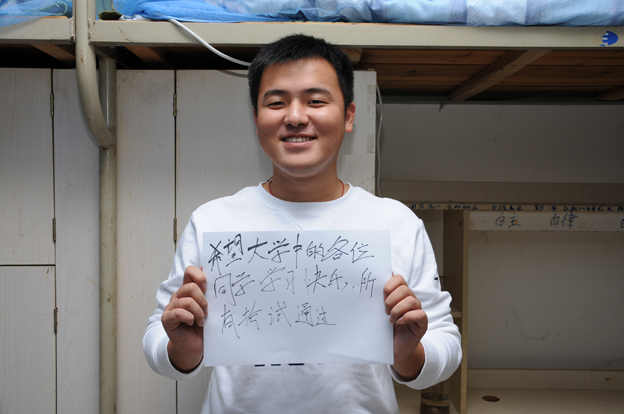 希望大学中的各位
同学学习快乐,所
有考试通过
白五 白律